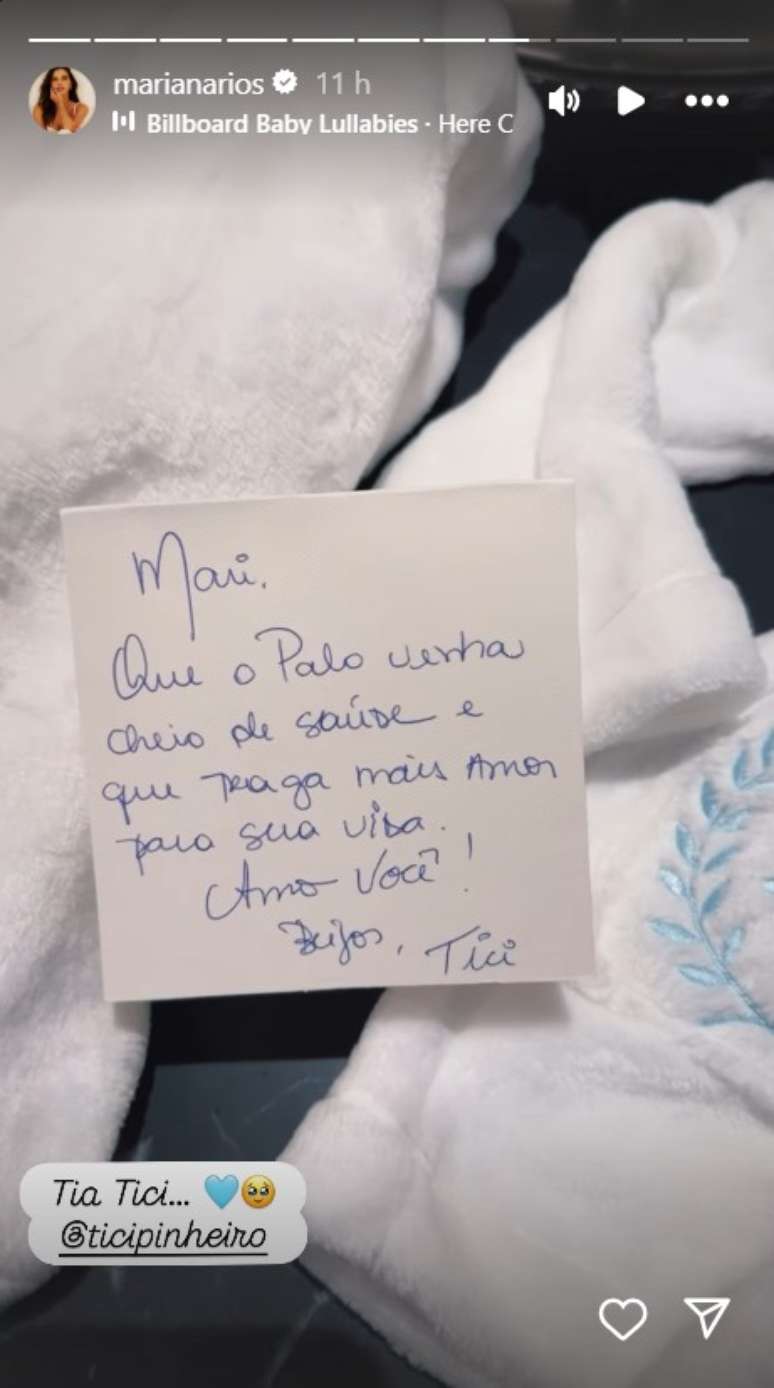 marianarios 11 h
Billboard Baby Lullabies · Here C
Mari.
Que o Palo venha
cheio de saúde e
que traga mais amor
para sua vida.
Amo você!
Beijos, Tici
Tia Tici... 🩵🥹
@ticipinheiro